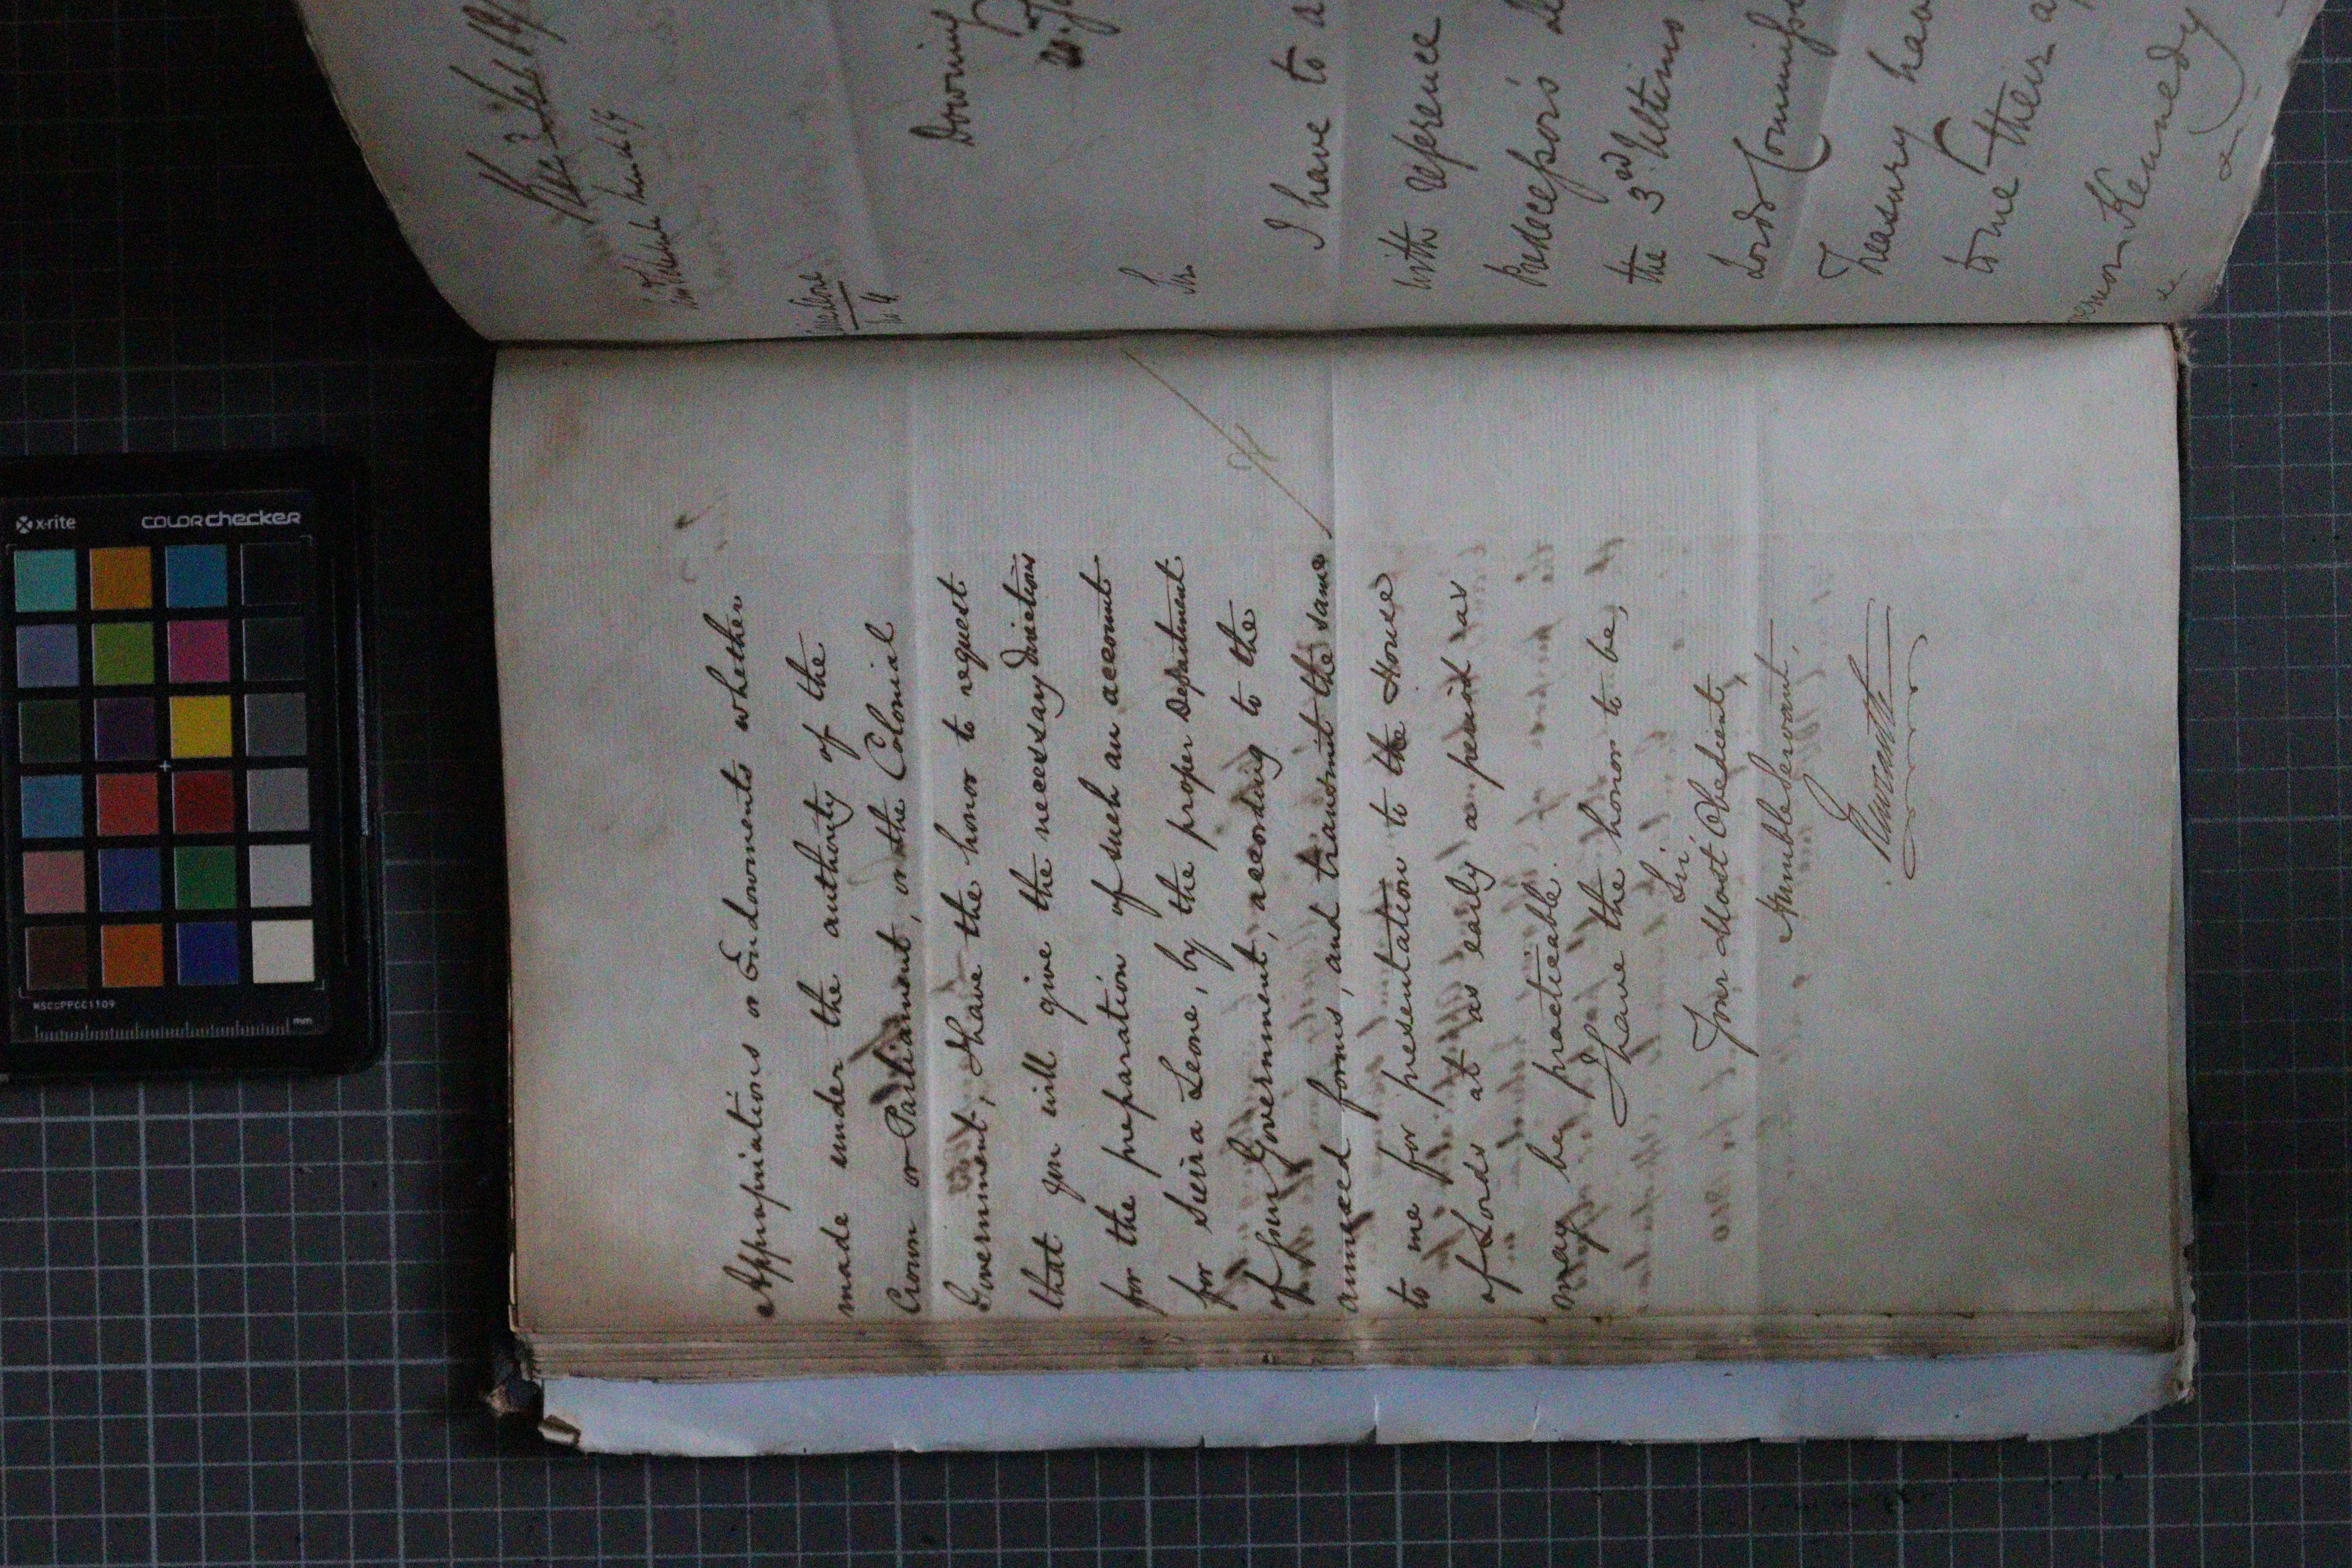 Appropriations or Endowments whether
made under the authority of the
Crown or Parliament, or the Colonial
Government, I have the honor to request
that you will give the necessary directions
for the preparation of such an account
for Sierra Leone, by the proper Department
of your Government, according to the
annexed forms, and transmit the same
to me for presentation to the House
of Lords at as early a period as
may be practicable.
I have the honor to be,
Sir,
Your Most Obedient,
Humble Servant,
Newcastle
Downing
Sir
I have to a
with reference
Predecessor's
the 3rd Ultimo
Lords Commiss
Treasury have
to me their a
Kennedy
x-rite
colorchecker
MSCCPPCC1109
mm